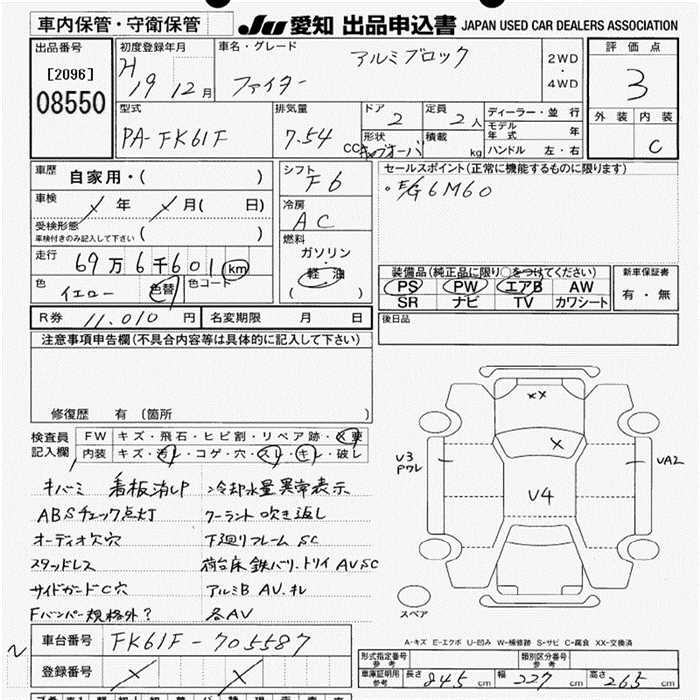 車内保管・守衛保管
JU 愛知 出品申込書 JAPAN USED CAR DEALERS ASSOCIATION
出品番号
[2096]
08550
初度登録年月
H 19 12 月
車名・グレード
ファイター アルミブロック
2WD
・
4WD
評価点
3
外装 内装
C
型式
PA-FK61F
排気量
7.54 CC
ドア
2
定員
2 人
形状
積載
kg
ディーラー・並行
モデル年式 年
ハンドル 左・右
車歴
自家用・( )
車検
年 月( 日)
受検形態
車検付きのみ記入して下さい ( )
走行
69万6千601 km
色
イエロー
色替
色コード
シフト
F6
冷房
AC
燃料
ガソリン
・
軽油
( )
セールスポイント(正常に機能するものに限ります)
。E/G 6M60
装備品(純正品に限り○をつけてください)
PS PW エアB AW
SR ナビ TV カワシート
新車保証書
有・無
R券 11.010 円
名変期限 月 日
後日品
注意事項申告欄(不具合内容等は具体的に記入して下さい)
修復歴 有(箇所 )
検査員
記入欄
FW キズ・飛石・ヒビ割・リペア跡・X要
内装 キズ・汚レ・コゲ・穴・スレ・キレ・破レ
キバミ 看板消し 冷却水量異常表示
ABSチェック点灯 クーラント吹き返し
オーディオ欠穴 下廻りフレーム SC
スタッドレス 荷台床鉄バリ・トリイ AV SC
サイドガードC穴 アルミB AV.キレ
Fバンパー規格外? 各AV
XX
X
U3
Pワレ
U4
UA2
スペア
A-キズ E-エクボ U-凹み W-補修跡 S-サビ C-腐食 XX-交換済
車台番号 FK61F-705587
登録番号
形式指定番号
参考
類別区分番号
参考
車庫証明用
参考
長さ 845 cm 幅 227 cm 高さ 265 cm